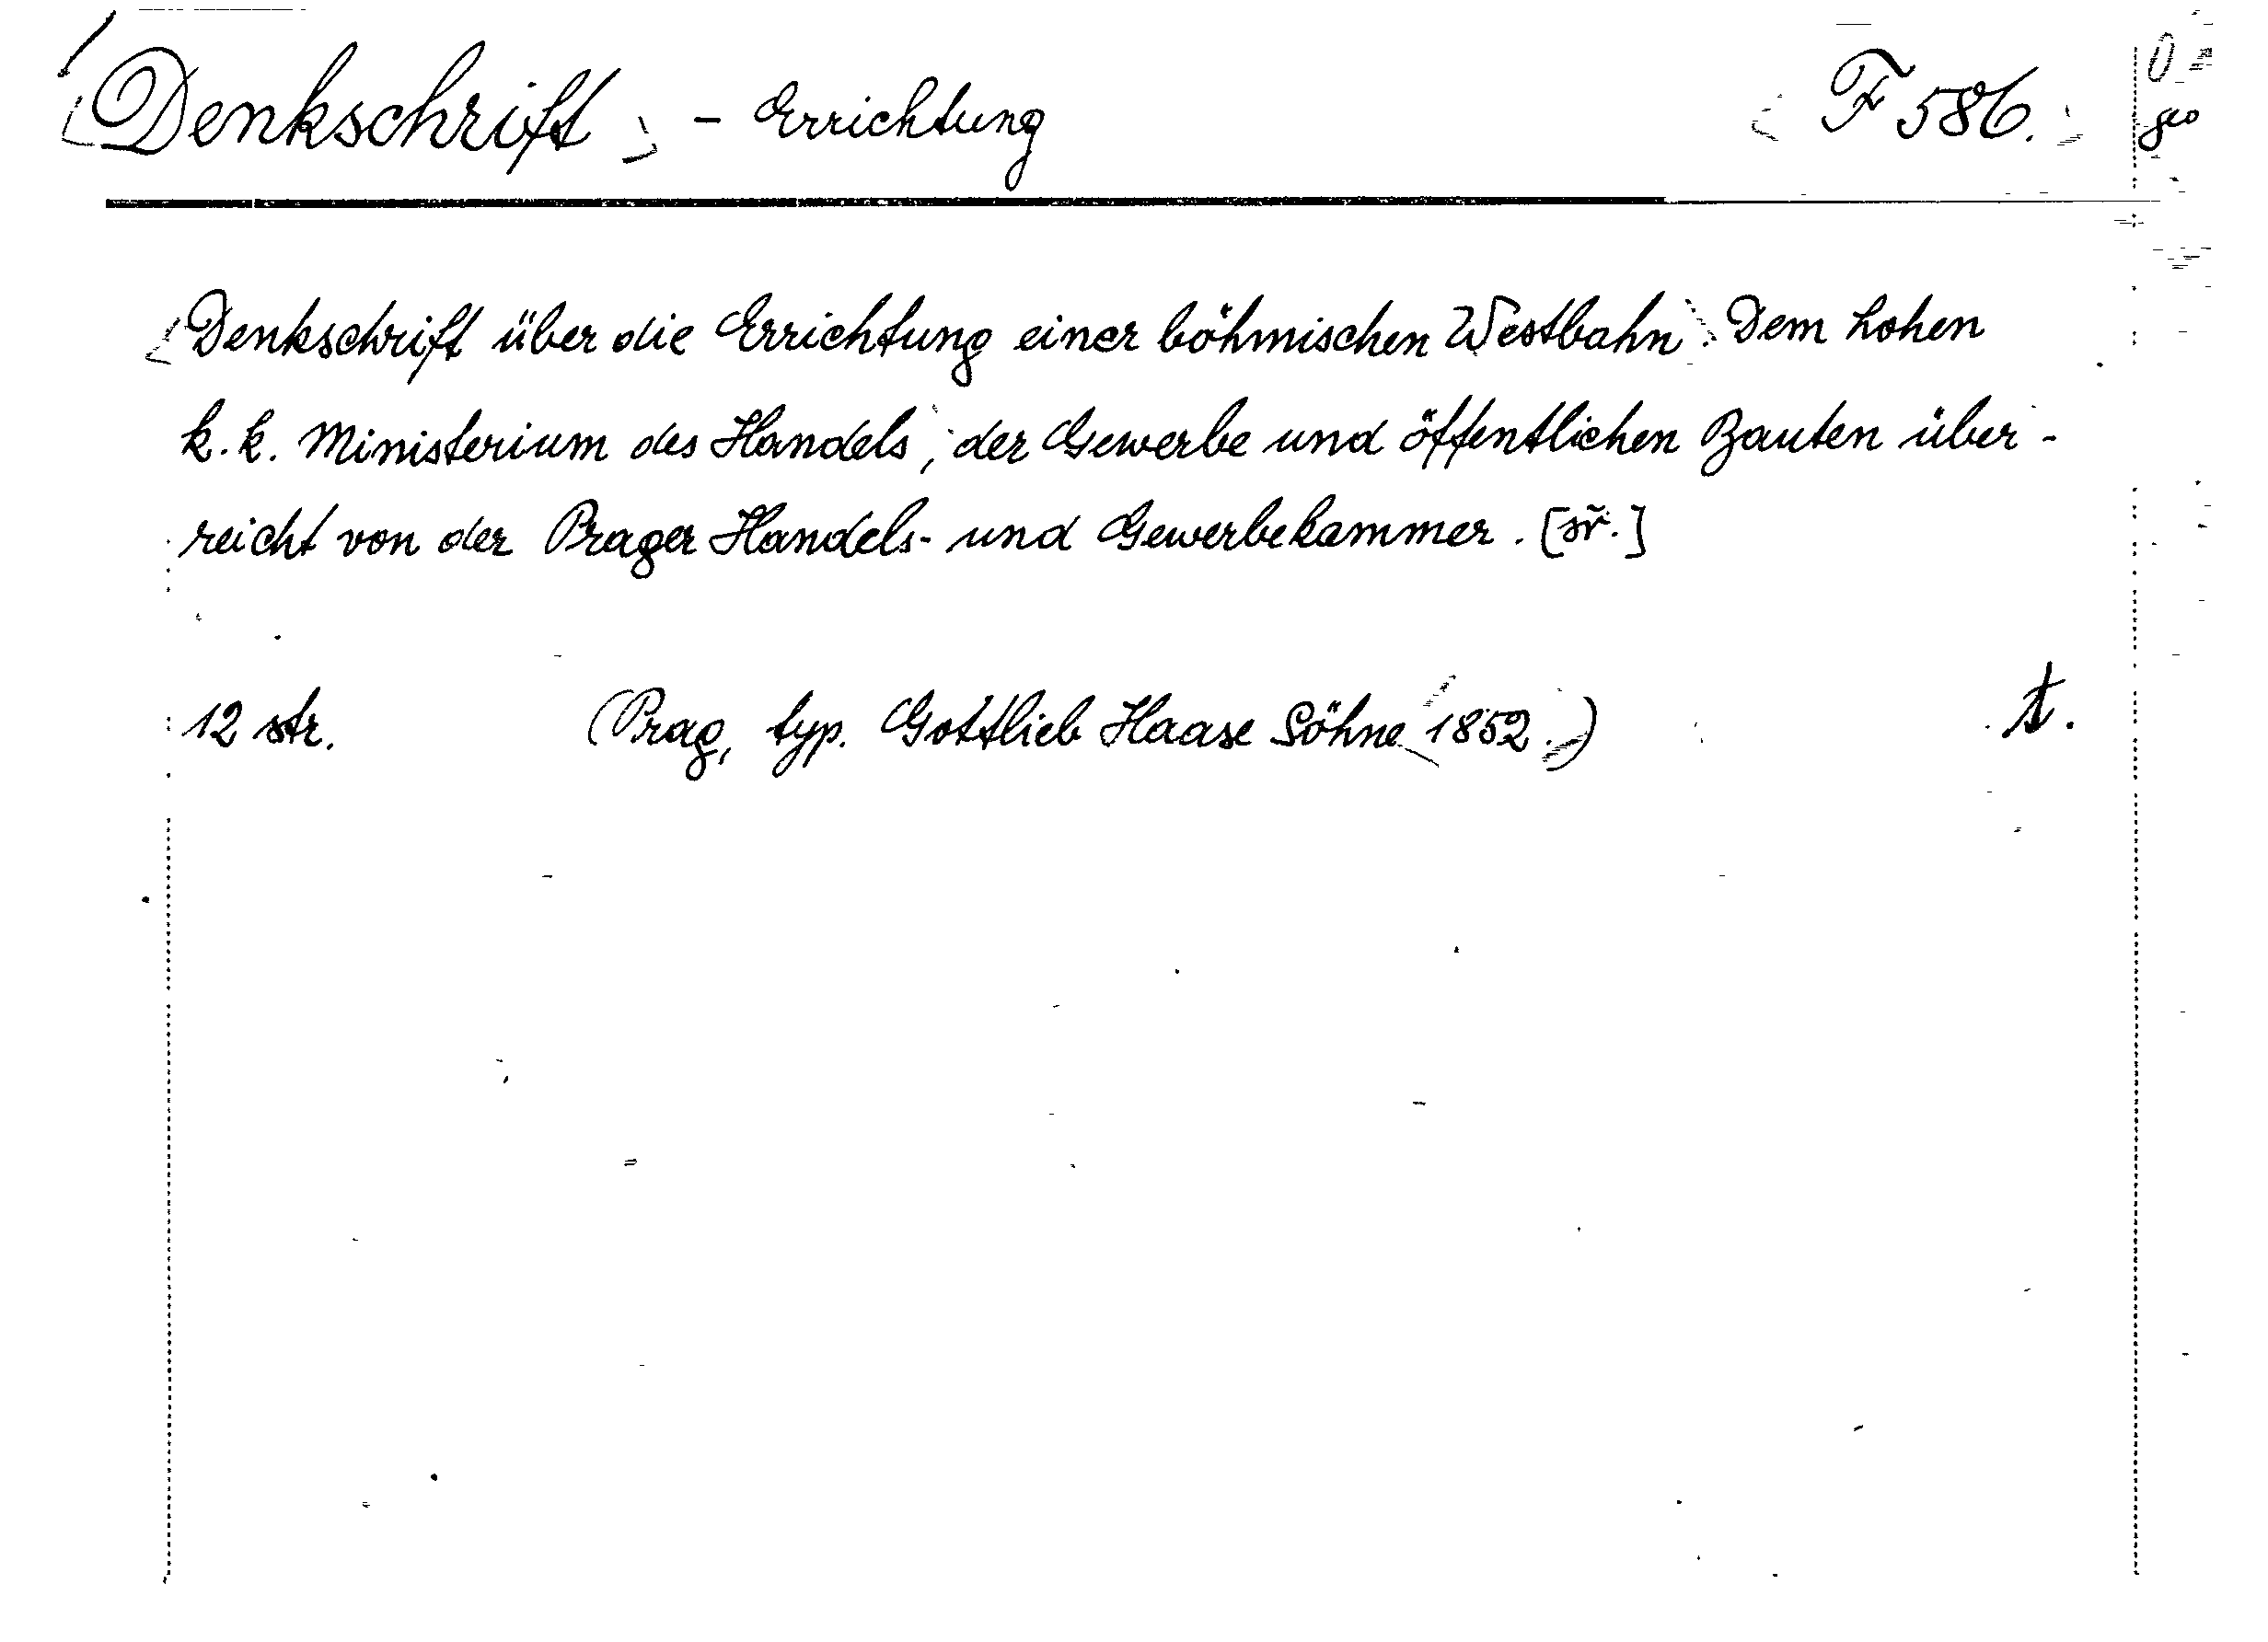 Denkschrift - Errichtung F 586. geo
Denkschrift über die Errichtung einer böhmischen Westbahn. Dem hohen
k. k. Ministerium des Handels, der Gewerbe und öffentlichen Bauten über-
reicht von der Prager Handels- und Gewerbekammer. [sř.]
12 str. (Prag, typ. Gottlieb Haase Söhne 1852.) t.